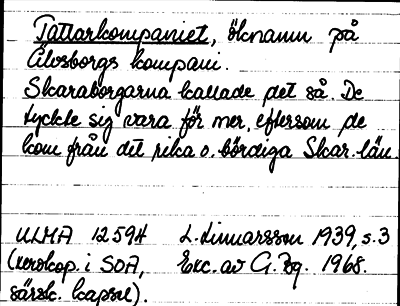 Tattarkompaniet, öknamn på
Älvsborgs kompani.
Skaraborgarna kallade det så. De
tyckte sig vara för mer, eftersom de
kom från det rika o. bördiga Skar. län.
ULMA 12594 L. Linnarsson 1939, s. 3
(xeroxkop. i SOA, Exc. av G. Bg. 1968.
särsk. kapsel).